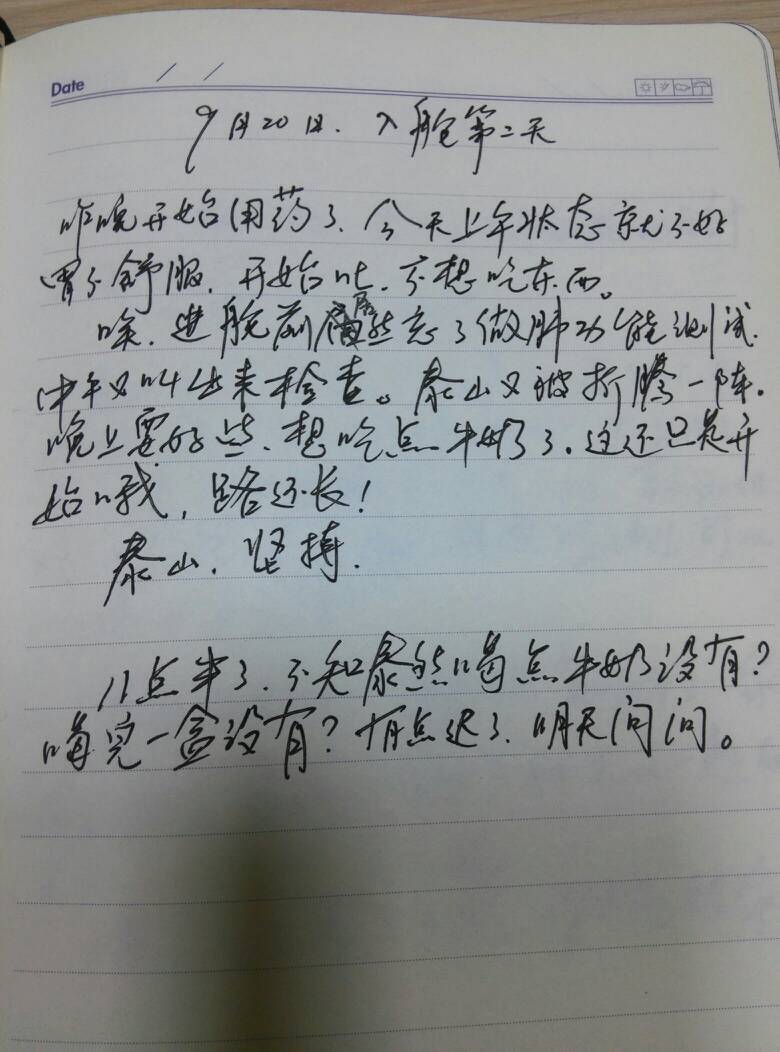 Date / /
9月20日. 入舱第二天
昨晚开始用药了. 今天上午状态就不好
胃不舒服. 开始吐. 不想吃东西。
唉. 进舱前居然忘了做肺功能测试.
中午又叫出来检查。泰山又被折腾一阵.
晚上要好些、想吃点牛奶了. 这还只是开
始哦, 路还长!
泰山. 坚持.
11点半了. 不知泰然喝点牛奶没有?
喝完一盒没有? 有点迟了. 明天问问。